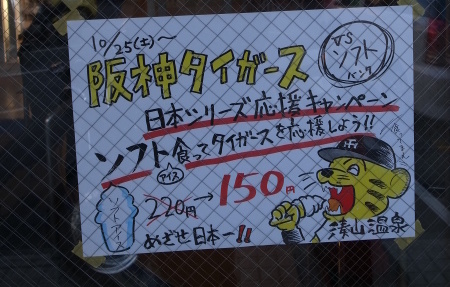 10/25(土)～
阪神タイガース
VS
ソフト
バンク
日本シリーズ応援キャンペーン
ソフト食ってタイガースを応援しよう!!
アイス
ソフトアイス
220円→150円
めざせ日本一!!
湊山温泉